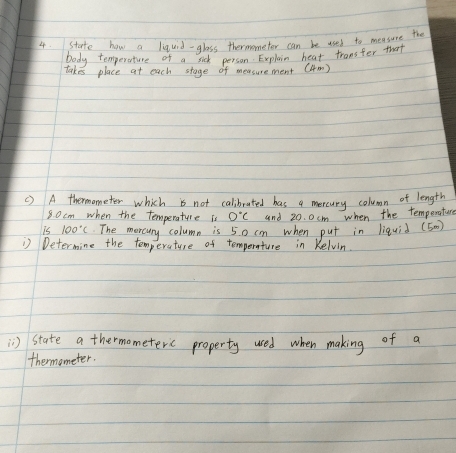 4. State how a liquid-glass thermometer can be used to measure the
body temperature of a sick person. Explain heat transfer that
takes place at each stage of measurement (4m)
c) A thermometer which is not calibrated has a mercury column of length
8.0cm when the temperature is 0°C and 20.0cm when the temperature
is 100°C. The mercury column is 5.0 cm when put in liquid (5m)
i) Determine the temperature of temperature in Kelvin
ii) State a thermometeric property used when making of a
thermometer.